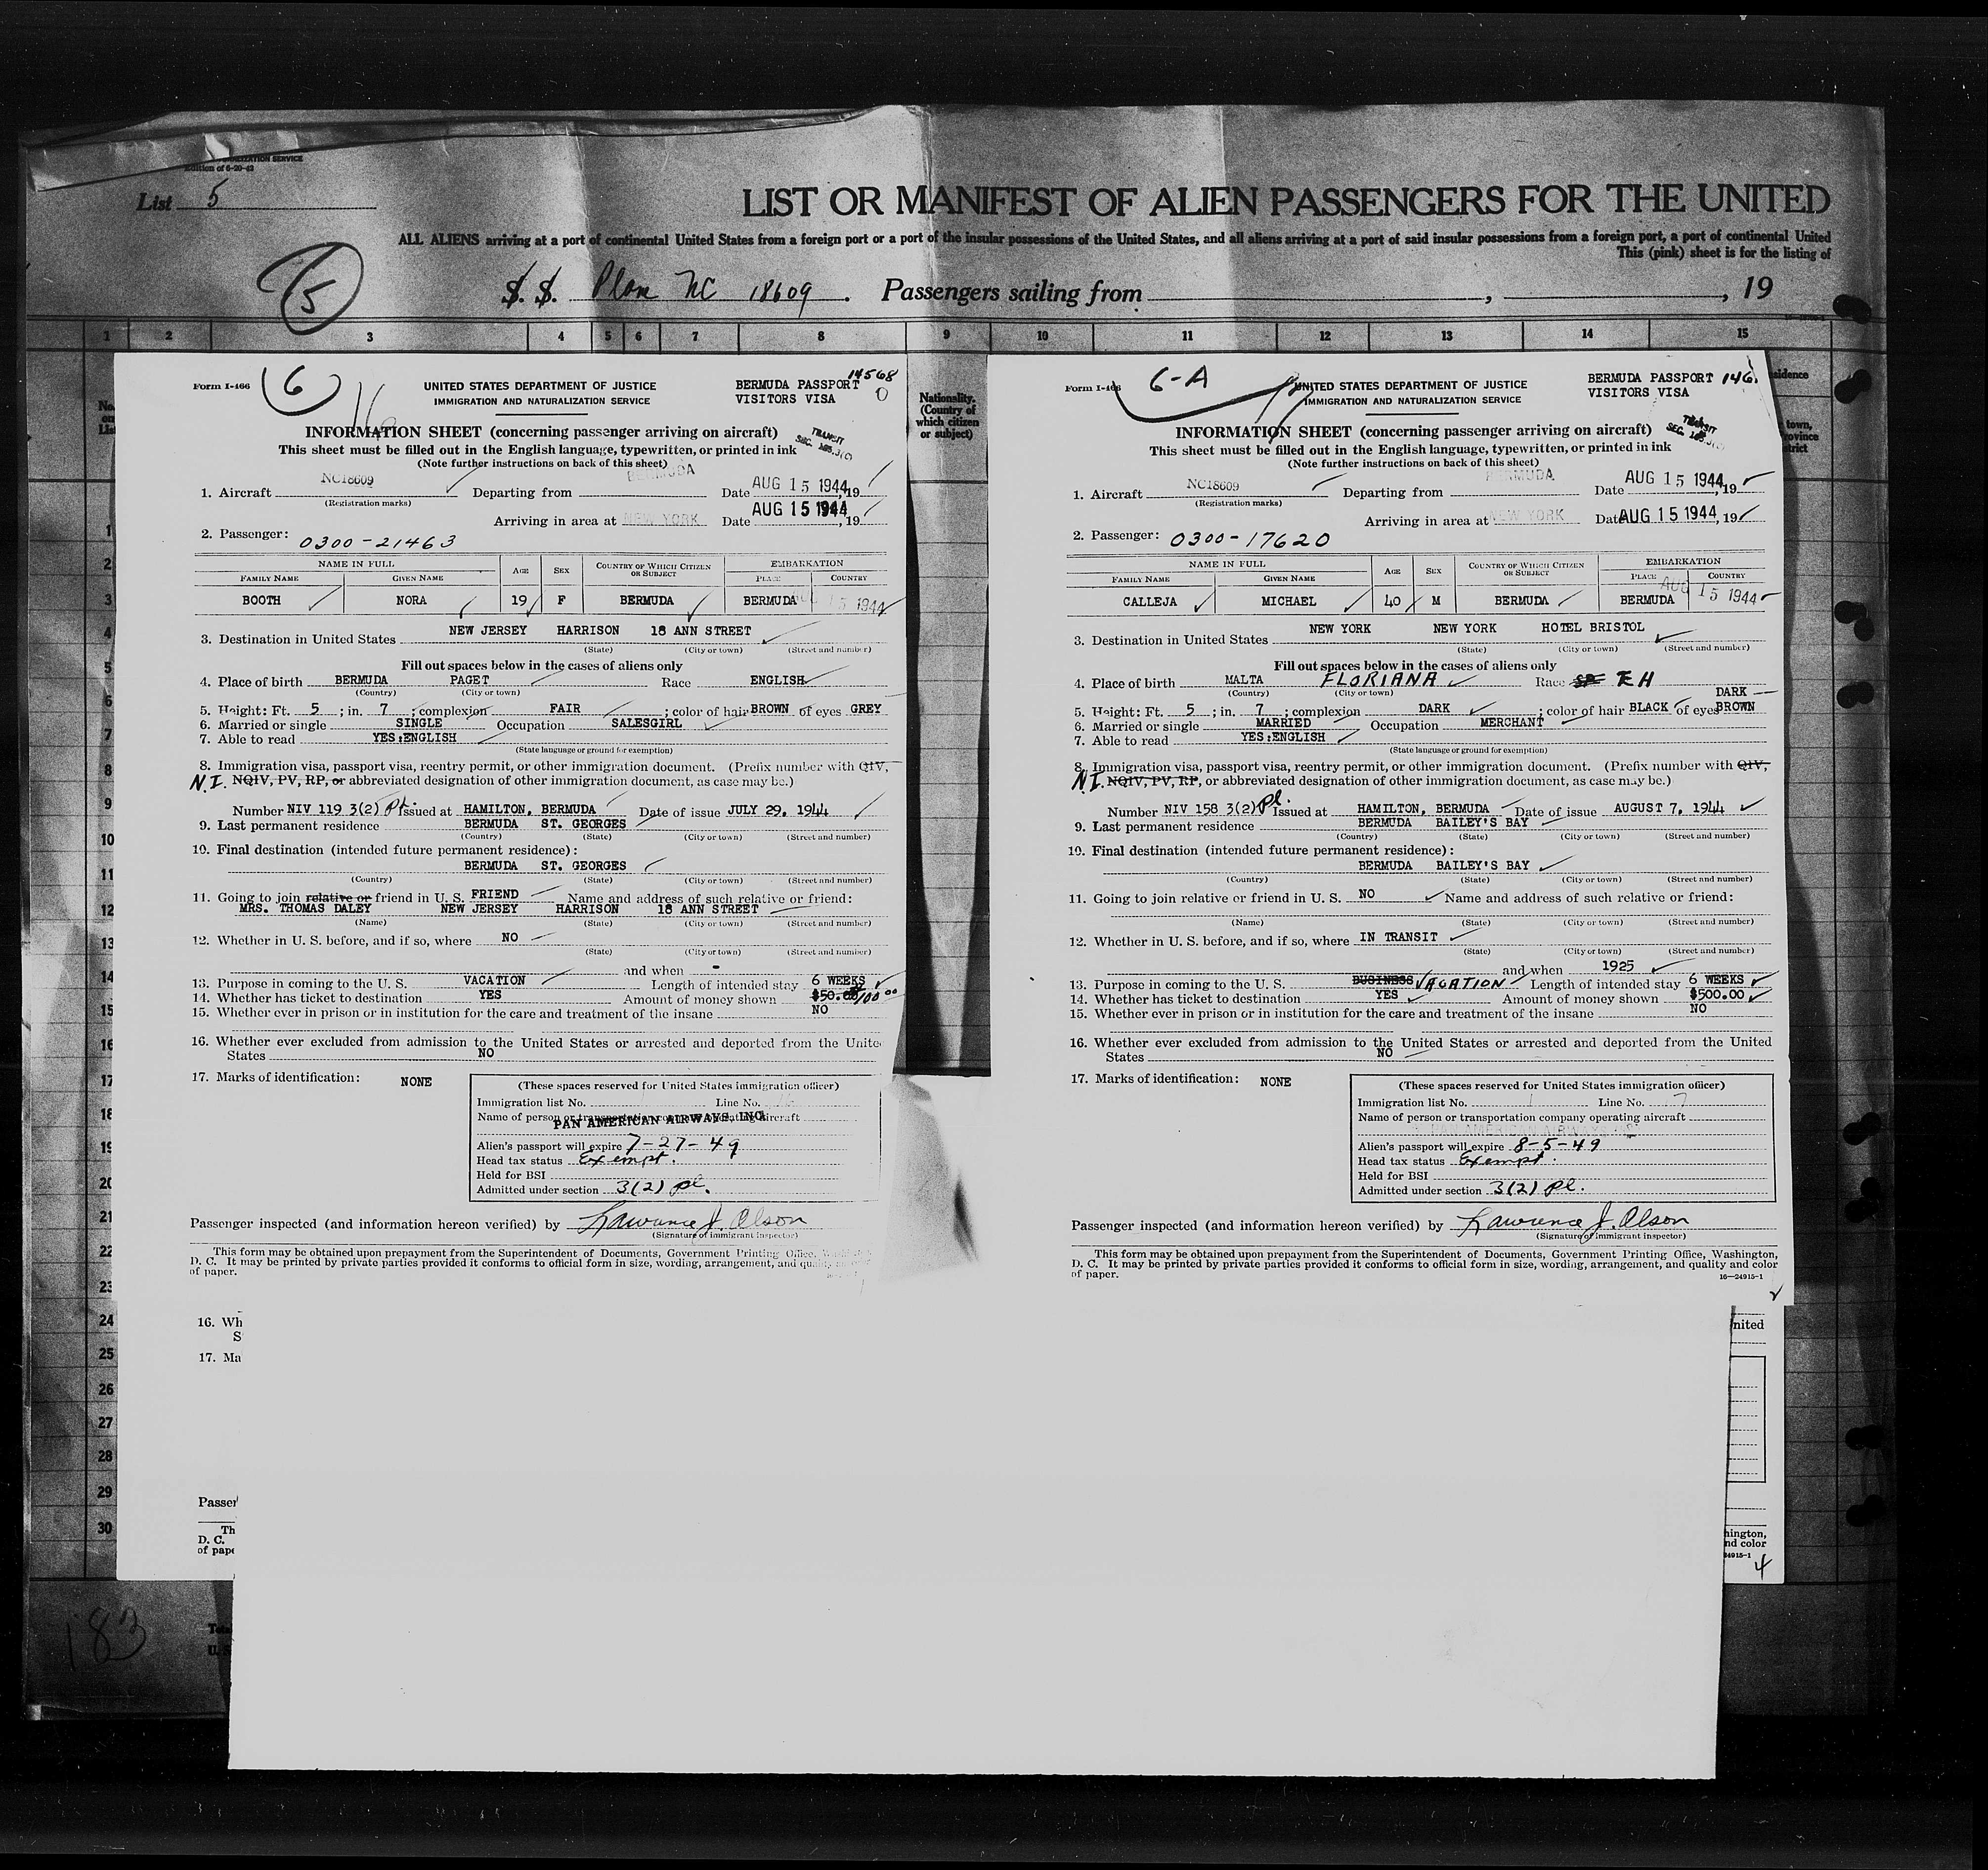 IMMIGRATION SERVICE
Edition of 6-20-43
List 5
LIST OR MANIFEST OF ALIEN PASSENGERS FOR THE UNITED
ALL ALIENS arriving at a port of continental United States from a foreign port or a port of the insular possessions of the United States, and all aliens arriving at a port of said insular possessions from a foreign port, a port of continental United
This (pink) sheet is for the listing of
5
S. S. Plane NC 18609. Passengers sailing from , , 19
1 2 3 4 5 6 7 8 9 10 11 12 13 14 15
No. on List
Nationality. (Country of which citizen or subject)
1
2
3
4
5
6
7
8
9
10
11
12
13
14
15
16
17
18
19
20
21
22
23
24
25
26
27
28
29
30
183
Form I-466
6
14568
UNITED STATES DEPARTMENT OF JUSTICE
IMMIGRATION AND NATURALIZATION SERVICE
BERMUDA PASSPORT
VISITORS VISA
TRANSIT
INFORMATION SHEET (concerning passenger arriving on aircraft)
This sheet must be filled out in the English language, typewritten, or printed in ink
(Note further instructions on back of this sheet)
1. Aircraft NC18609 Departing from BERMUDA Date AUG 15 1944, 19
(Registration marks)
Arriving in area at NEW YORK Date AUG 15 1944, 19
2. Passenger: 0300-21463
NAME IN FULL AGE SEX COUNTRY OF WHICH CITIZEN OR SUBJECT EMBARKATION
FAMILY NAME GIVEN NAME PLACE COUNTRY
BOOTH NORA 19 F BERMUDA BERMUDA AUG 15 1944
3. Destination in United States NEW JERSEY HARRISON 18 ANN STREET
(State) (City or town) (Street and number)
Fill out spaces below in the cases of aliens only
4. Place of birth BERMUDA PAGET Race ENGLISH
(Country) (City or town)
5. Height: Ft. 5; in. 7; complexion FAIR; color of hair BROWN of eyes GREY
6. Married or single SINGLE Occupation SALESGIRL
7. Able to read YES:ENGLISH
(State language or ground for exemption)
8. Immigration visa, passport visa, reentry permit, or other immigration document. (Prefix number with QIV,
N.I. NQIV, PV, RP, or abbreviated designation of other immigration document, as case may be.)
Number NIV 119 3(2) Pl. Issued at HAMILTON, BERMUDA Date of issue JULY 29, 1944
9. Last permanent residence BERMUDA ST. GEORGES
(Country) (State) (City or town) (Street and number)
10. Final destination (intended future permanent residence):
BERMUDA ST. GEORGES
(Country) (State) (City or town) (Street and number)
11. Going to join relative or friend in U. S. FRIEND Name and address of such relative or friend:
MRS. THOMAS DALEY NEW JERSEY HARRISON 18 ANN STREET
(Name) (State) (City or town) (Street and number)
12. Whether in U. S. before, and if so, where NO
(State) (City or town) (Street and number)
and when -
13. Purpose in coming to the U. S. VACATION Length of intended stay 6 WEEKS
14. Whether has ticket to destination YES Amount of money shown $50.00 $100 00
15. Whether ever in prison or in institution for the care and treatment of the insane NO
16. Whether ever excluded from admission to the United States or arrested and deported from the United
States NO
17. Marks of identification: NONE
(These spaces reserved for United States immigration officer)
Immigration list No. Line No.
Name of person or transportation company operating aircraft
PAN AMERICAN AIRWAYS, INC.
Alien's passport will expire 7-27-49
Head tax status Exempt.
Held for BSI
Admitted under section 3(2) Pl.
Passenger inspected (and information hereon verified) by Lawrence J. Olson
(Signature of immigrant inspector)
This form may be obtained upon prepayment from the Superintendent of Documents, Government Printing Office, Washington,
D. C. It may be printed by private parties provided it conforms to official form in size, wording, arrangement, and quality
of paper.
16. Wh
S
17. Ma
Passer
Th
D. C.
of pape
Form I-466
6-A
146
UNITED STATES DEPARTMENT OF JUSTICE
IMMIGRATION AND NATURALIZATION SERVICE
BERMUDA PASSPORT
VISITORS VISA
TRANSIT
INFORMATION SHEET (concerning passenger arriving on aircraft)
This sheet must be filled out in the English language, typewritten, or printed in ink
(Note further instructions on back of this sheet)
1. Aircraft NC18609 Departing from BERMUDA Date AUG 15 1944, 19
(Registration marks)
Arriving in area at NEW YORK Date AUG 15 1944, 19
2. Passenger: 0300-17620
NAME IN FULL AGE SEX COUNTRY OF WHICH CITIZEN OR SUBJECT EMBARKATION
FAMILY NAME GIVEN NAME PLACE COUNTRY
CALLEJA MICHAEL 40 M BERMUDA BERMUDA AUG 15 1944
3. Destination in United States NEW YORK NEW YORK HOTEL BRISTOL
(State) (City or town) (Street and number)
Fill out spaces below in the cases of aliens only
4. Place of birth MALTA FLORIANA Race EH
(Country) (City or town)
DARK
5. Height: Ft. 5; in. 7; complexion DARK; color of hair BLACK of eyes BROWN
6. Married or single MARRIED Occupation MERCHANT
7. Able to read YES:ENGLISH
(State language or ground for exemption)
8. Immigration visa, passport visa, reentry permit, or other immigration document. (Prefix number with QIV,
N.I. NQIV, PV, RP, or abbreviated designation of other immigration document, as case may be.)
Number NIV 158 3(2) Pl. Issued at HAMILTON, BERMUDA Date of issue AUGUST 7, 1944
9. Last permanent residence BERMUDA BAILEY'S BAY
(Country) (State) (City or town) (Street and number)
10. Final destination (intended future permanent residence):
BERMUDA BAILEY'S BAY
(Country) (State) (City or town) (Street and number)
11. Going to join relative or friend in U. S. NO Name and address of such relative or friend:
(Name) (State) (City or town) (Street and number)
12. Whether in U. S. before, and if so, where IN TRANSIT
(State) (City or town) (Street and number)
and when 1925
13. Purpose in coming to the U. S. BUSINESS VACATION Length of intended stay 6 WEEKS
14. Whether has ticket to destination YES Amount of money shown $500.00
15. Whether ever in prison or in institution for the care and treatment of the insane NO
16. Whether ever excluded from admission to the United States or arrested and deported from the United
States NO
17. Marks of identification: NONE
(These spaces reserved for United States immigration officer)
Immigration list No. 1 Line No. 7
Name of person or transportation company operating aircraft
PAN AMERICAN AIRWAYS, INC.
Alien's passport will expire 8-5-49
Head tax status Exempt.
Held for BSI
Admitted under section 3(2) Pl.
Passenger inspected (and information hereon verified) by Lawrence J. Olson
(Signature of immigrant inspector)
This form may be obtained upon prepayment from the Superintendent of Documents, Government Printing Office, Washington,
D. C. It may be printed by private parties provided it conforms to official form in size, wording, arrangement, and quality and color
of paper.
16—24915-1
nited
hington,
nd color
24915-1
4